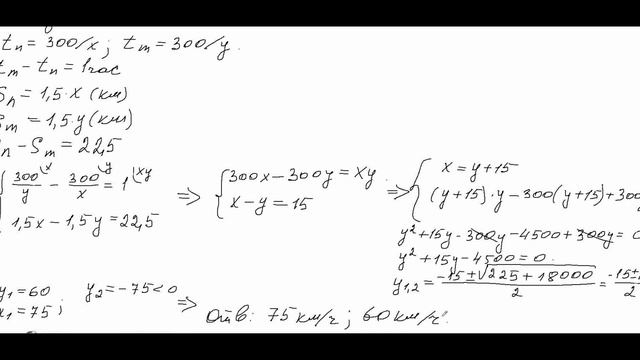 tₙ = 300/x ; tₘ = 300/y
tₘ − tₙ = 1 час
Sₙ = 1,5·x (км)
Sₘ = 1,5·y (км)
Sₙ − Sₘ = 22,5
{ 300/y − 300/x = 1 ⇒ { 300x − 300y = xy ⇒ { x = y + 15
1,5x − 1,5y = 22,5 x − y = 15 (y+15)·y − 300(y+15) + 300y
y² + 15y − 300y − 4500 + 300y = 0
y² + 15y − 4500 = 0.
y₁,₂ = (−15 ± √(225 + 18000))/2 = −15 ±
y₁ = 60 ; y₂ = −75 < 0 ⇒
x₁ = 75
Отв: 75 км/г ; 60 км/г.